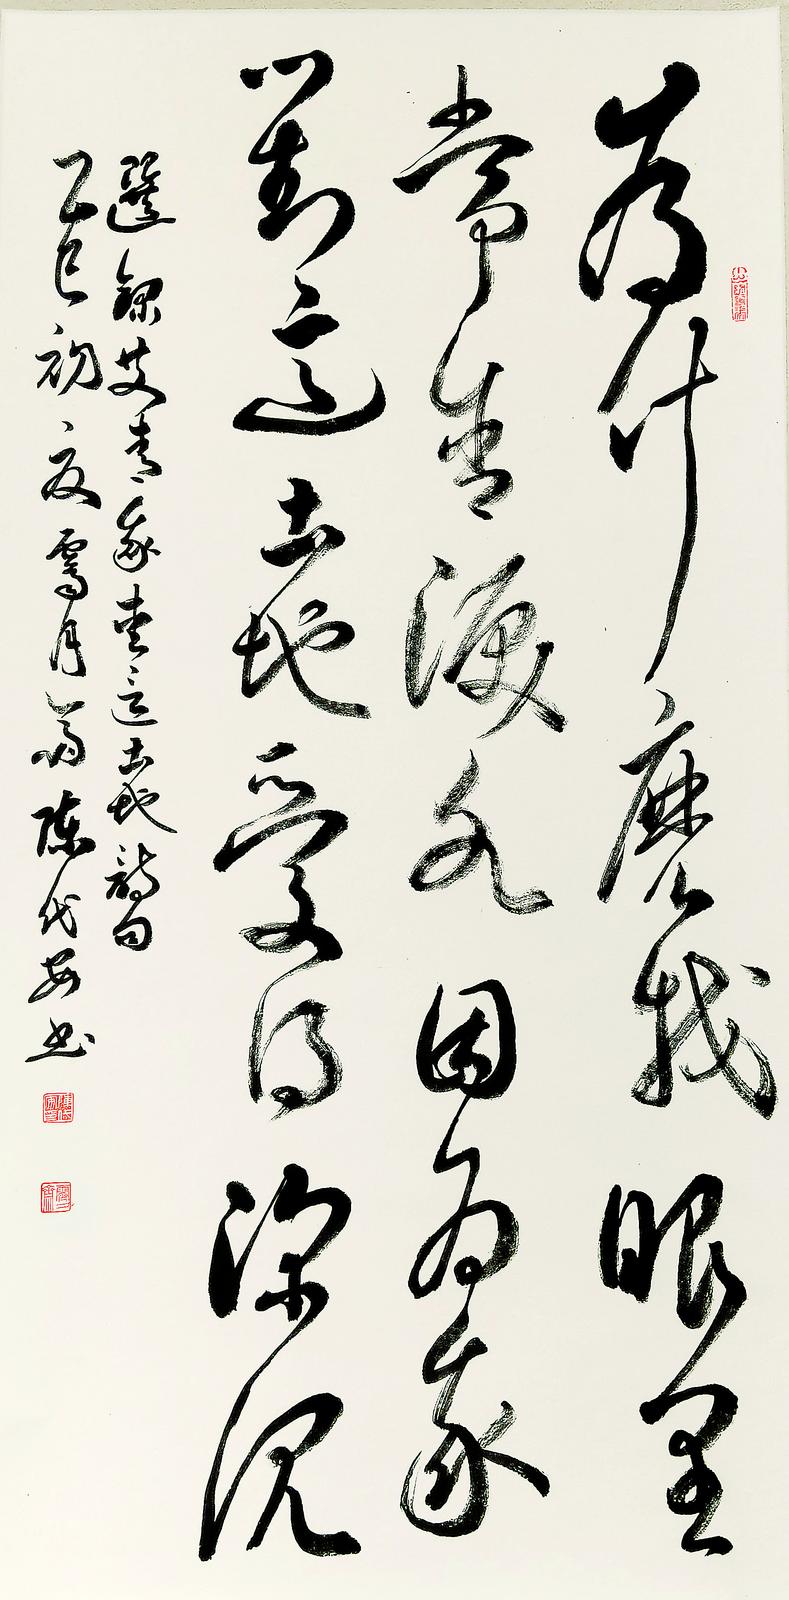 為什麼我眼里
常含淚水因為我
對這土地愛得深沉
選錄艾青我愛這土地詩句
乙巳初夏霽月翁陳代安书